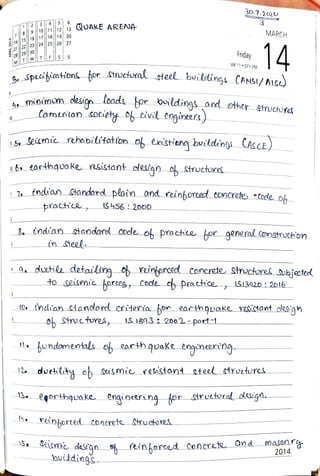 30.7.2020
QUAKE ARENA
3
MARCH
Friday
14
3. specifications for structural steel buildings (ANSI/AISC)
4. minimum design loads for buildings and other structures
(amenian society of civil engineers)
5. Seismic rehabilitation of existieng buildings (ASCE)
6. earthquake resistant design of structures
7. indian standard plain and reinforced concrete - code of
practice, IS456 : 2000
8. indian standard code of practice for general construction
in steel.
9. ductile detailing of reinforced concrete structures subjected
to seismic forces, code of practice, IS13920 : 2016
10. indian standard criteria for earthquake resistant design
of structures, IS 1893 : 2002 - part-1
11. fundamentals of earthquake engineering.
12. ductility of seismic resistant steel structures
13. earthquake engineering for structural design.
14. reinforced concrete structures
15. Seismic design of reinforced concrete and masonry
buildings.
2014